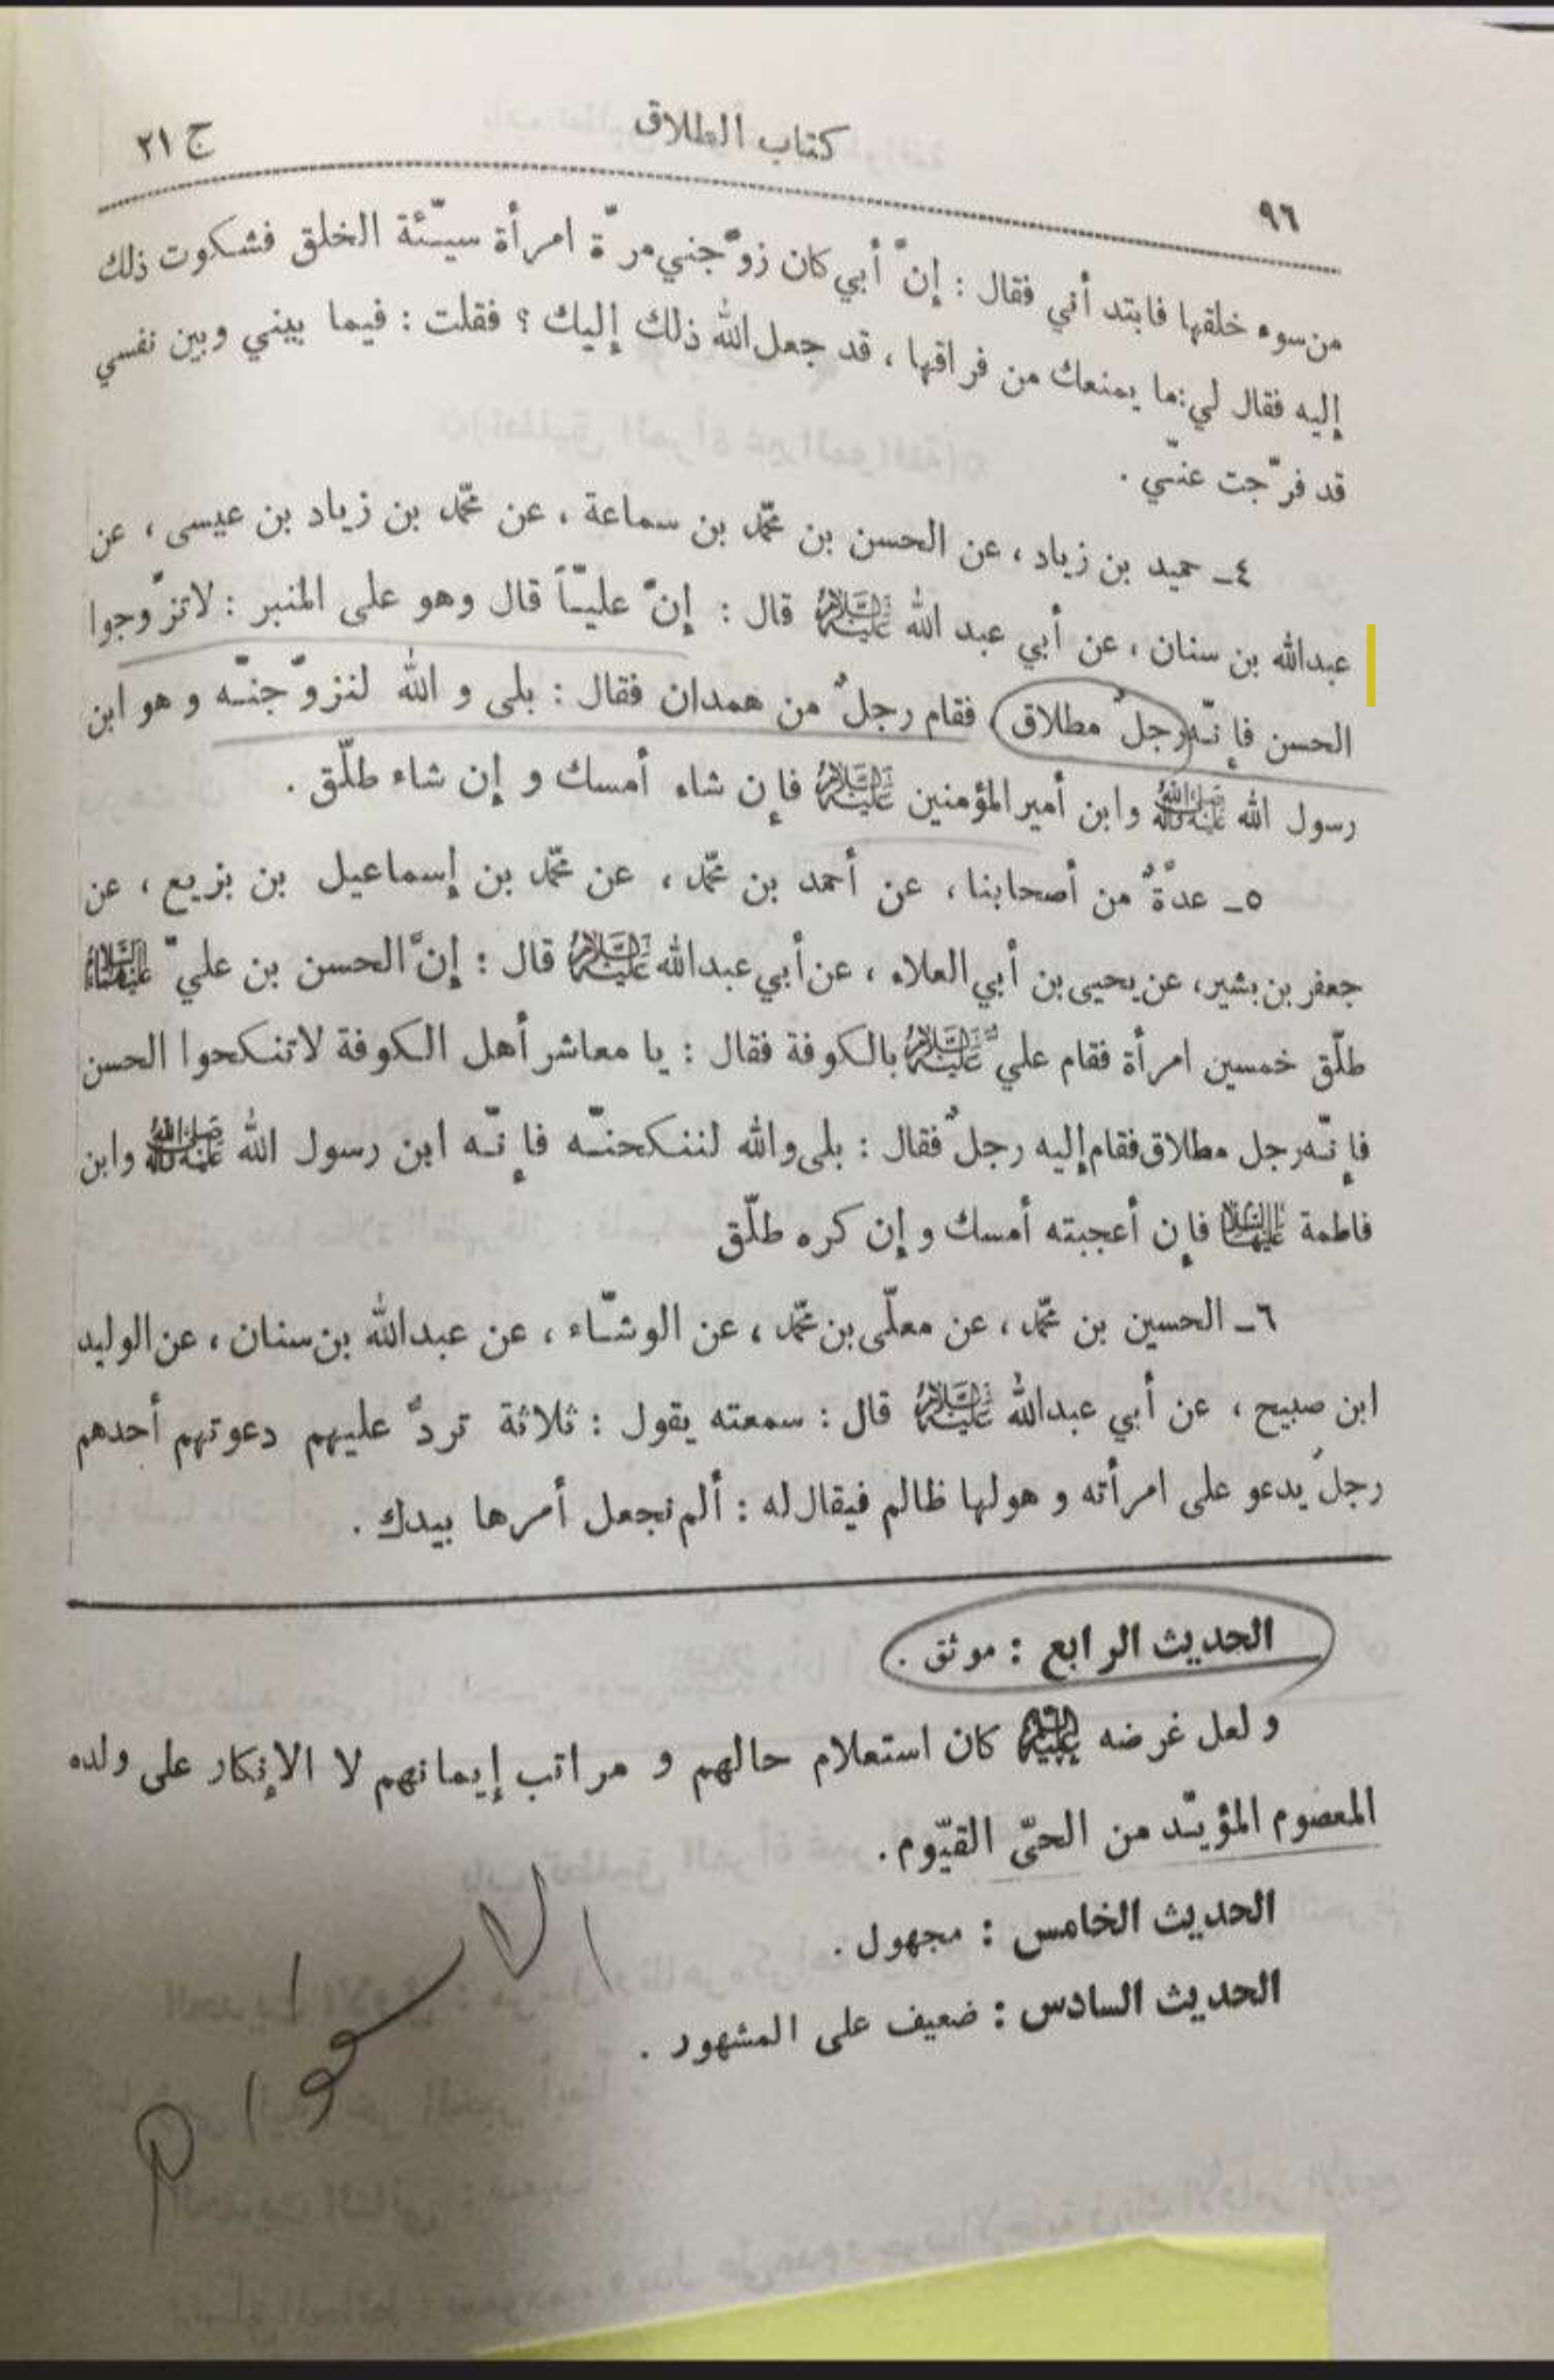 ج ٢١
كتاب الطلاق
٩٦
من سوء خلقها فابتدأني فقال : إنّ أبي كان زوّجني مرّة امرأة سيّئة الخلق فشكوت ذلك
إليه فقال لي : ما يمنعك من فراقها ، قد جعل الله ذلك إليك ؟ فقلت : فيما بيني وبين نفسي
قد فرّجت عنّي .
٤ـ حميد بن زياد ، عن الحسن بن محمّد بن سماعة ، عن محمّد بن زياد بن عيسى ، عن
عبدالله بن سنان ، عن أبي عبد الله عليه السلام قال : إنّ عليّاً قال وهو على المنبر : لاتزوّجوا
الحسن فإنّه رجلٌ مطلاق ، فقام رجلٌ من همدان فقال : بلى و الله لنزوّجنّه و هو ابن
رسول الله صلى الله عليه وآله وابن أمير المؤمنين عليه السلام فإن شاء أمسك و إن شاء طلّق .
٥ـ عدّةٌ من أصحابنا ، عن أحمد بن محمّد ، عن محمّد بن إسماعيل بن بزيع ، عن
جعفر بن بشير، عن يحيى بن أبي العلاء ، عن أبي عبدالله عليه السلام قال : إنّ الحسن بن علي عليهما السلام
طلّق خمسين امرأة فقام عليّ عليه السلام بالكوفة فقال : يا معاشر أهل الكوفة لاتنكحوا الحسن
فإنّه رجل مطلاق فقام إليه رجلٌ فقال : بلى والله لننكحنّه فإنّه ابن رسول الله صلى الله عليه وآله وابن
فاطمة عليها السلام فإن أعجبته أمسك و إن كره طلّق
٦ـ الحسين بن محمّد ، عن معلّى بن محمّد ، عن الوشّاء ، عن عبدالله بن سنان ، عن الوليد
ابن صبيح ، عن أبي عبدالله عليه السلام قال : سمعته يقول : ثلاثة تردّ عليهم دعوتهم أحدهم
رجلٌ يدعو على امرأته و هو لها ظالم فيقال له : ألم نجعل أمرها بيدك .
الحديث الرابع : موثق .
و لعل غرضه عليه السلام كان استعلام حالهم و مراتب إيمانهم لا الإنكار على ولده
المعصوم المؤيّد من الحيّ القيّوم .
الحديث الخامس : مجهول .
الحديث السادس : ضعيف على المشهور .